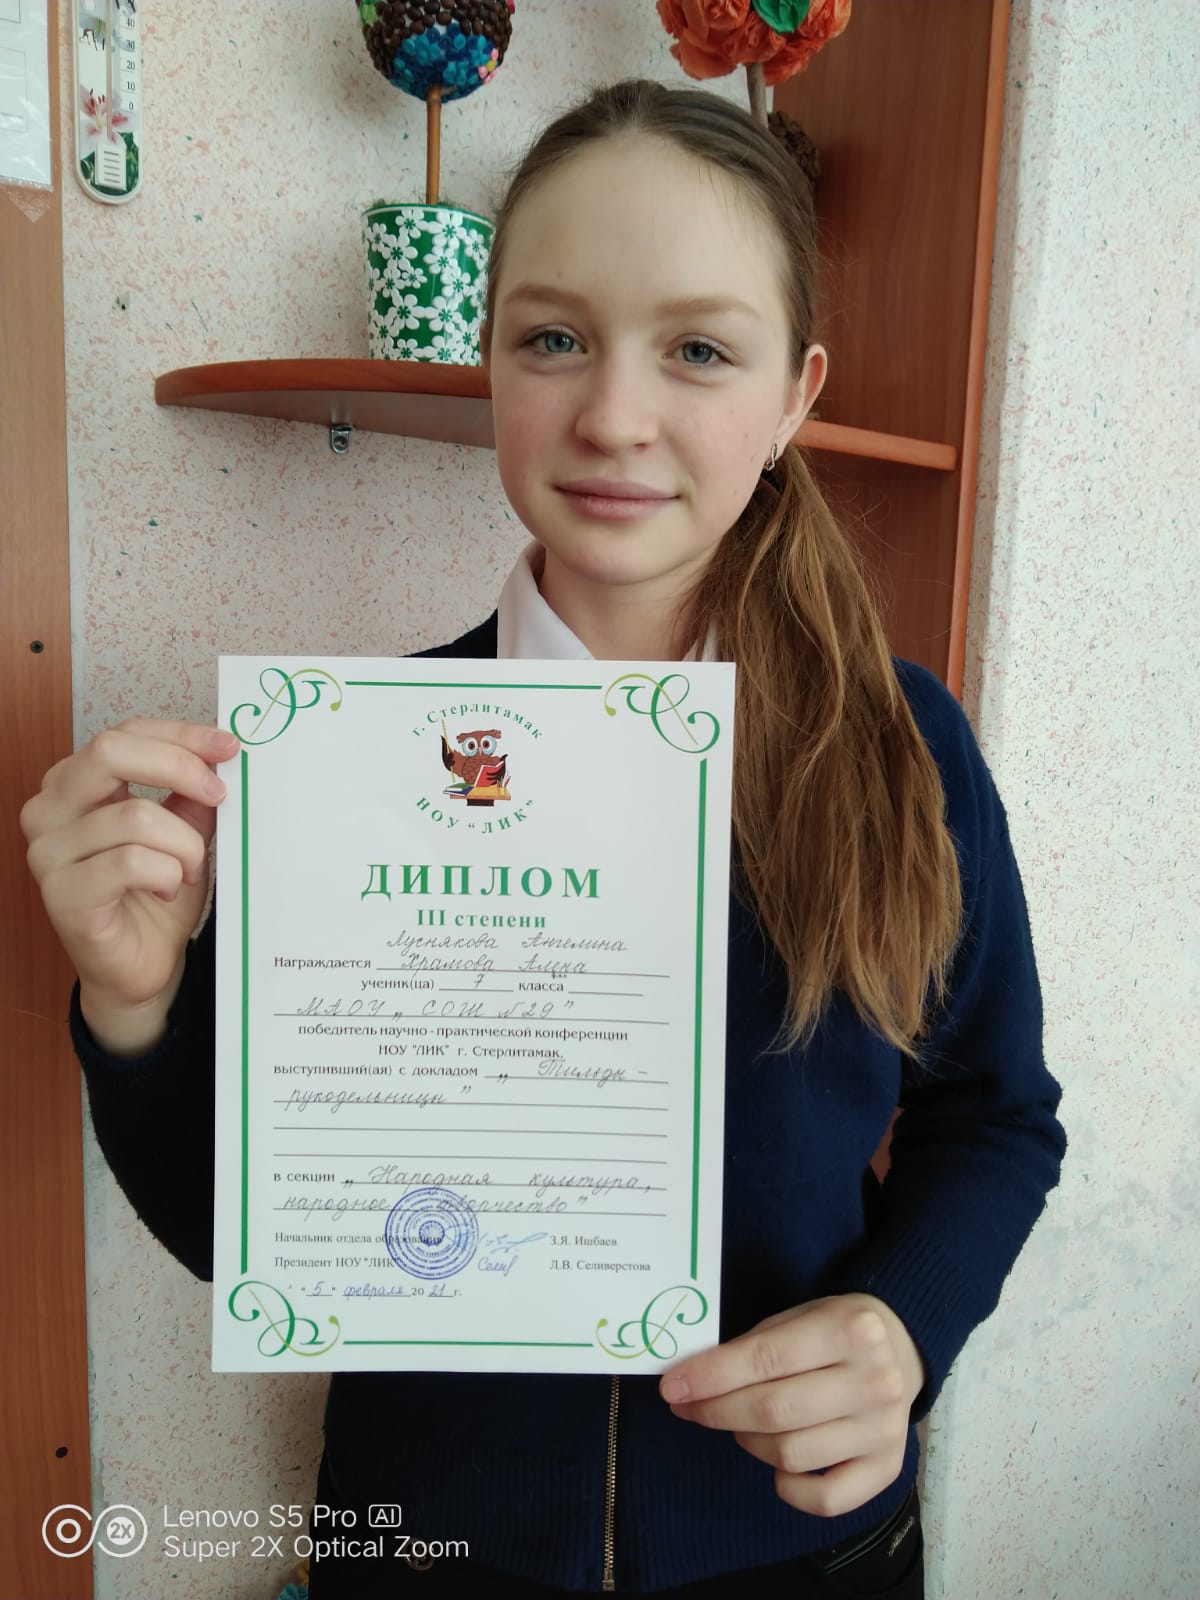 40
30
20
10
0
г. Стерлитамак
НОУ “ЛИК”
ДИПЛОМ
III степени
Луснякова Ангелина
Награждается Храмова Алена
ученик(ца) 7 класса
МАОУ „СОШ №29”
победитель научно - практической конференции
НОУ "ЛИК" г. Стерлитамак,
выступивший(ая) с докладом „Тильды -
рукодельницы”
в секции „Народная культура,
народное творчество”
Начальник отдела образования З.Я. Ишбаев
Президент НОУ "ЛИК" Л.В. Селиверстова
"5" февраля 2021г.
Lenovo S5 Pro AI
2X Super 2X Optical Zoom